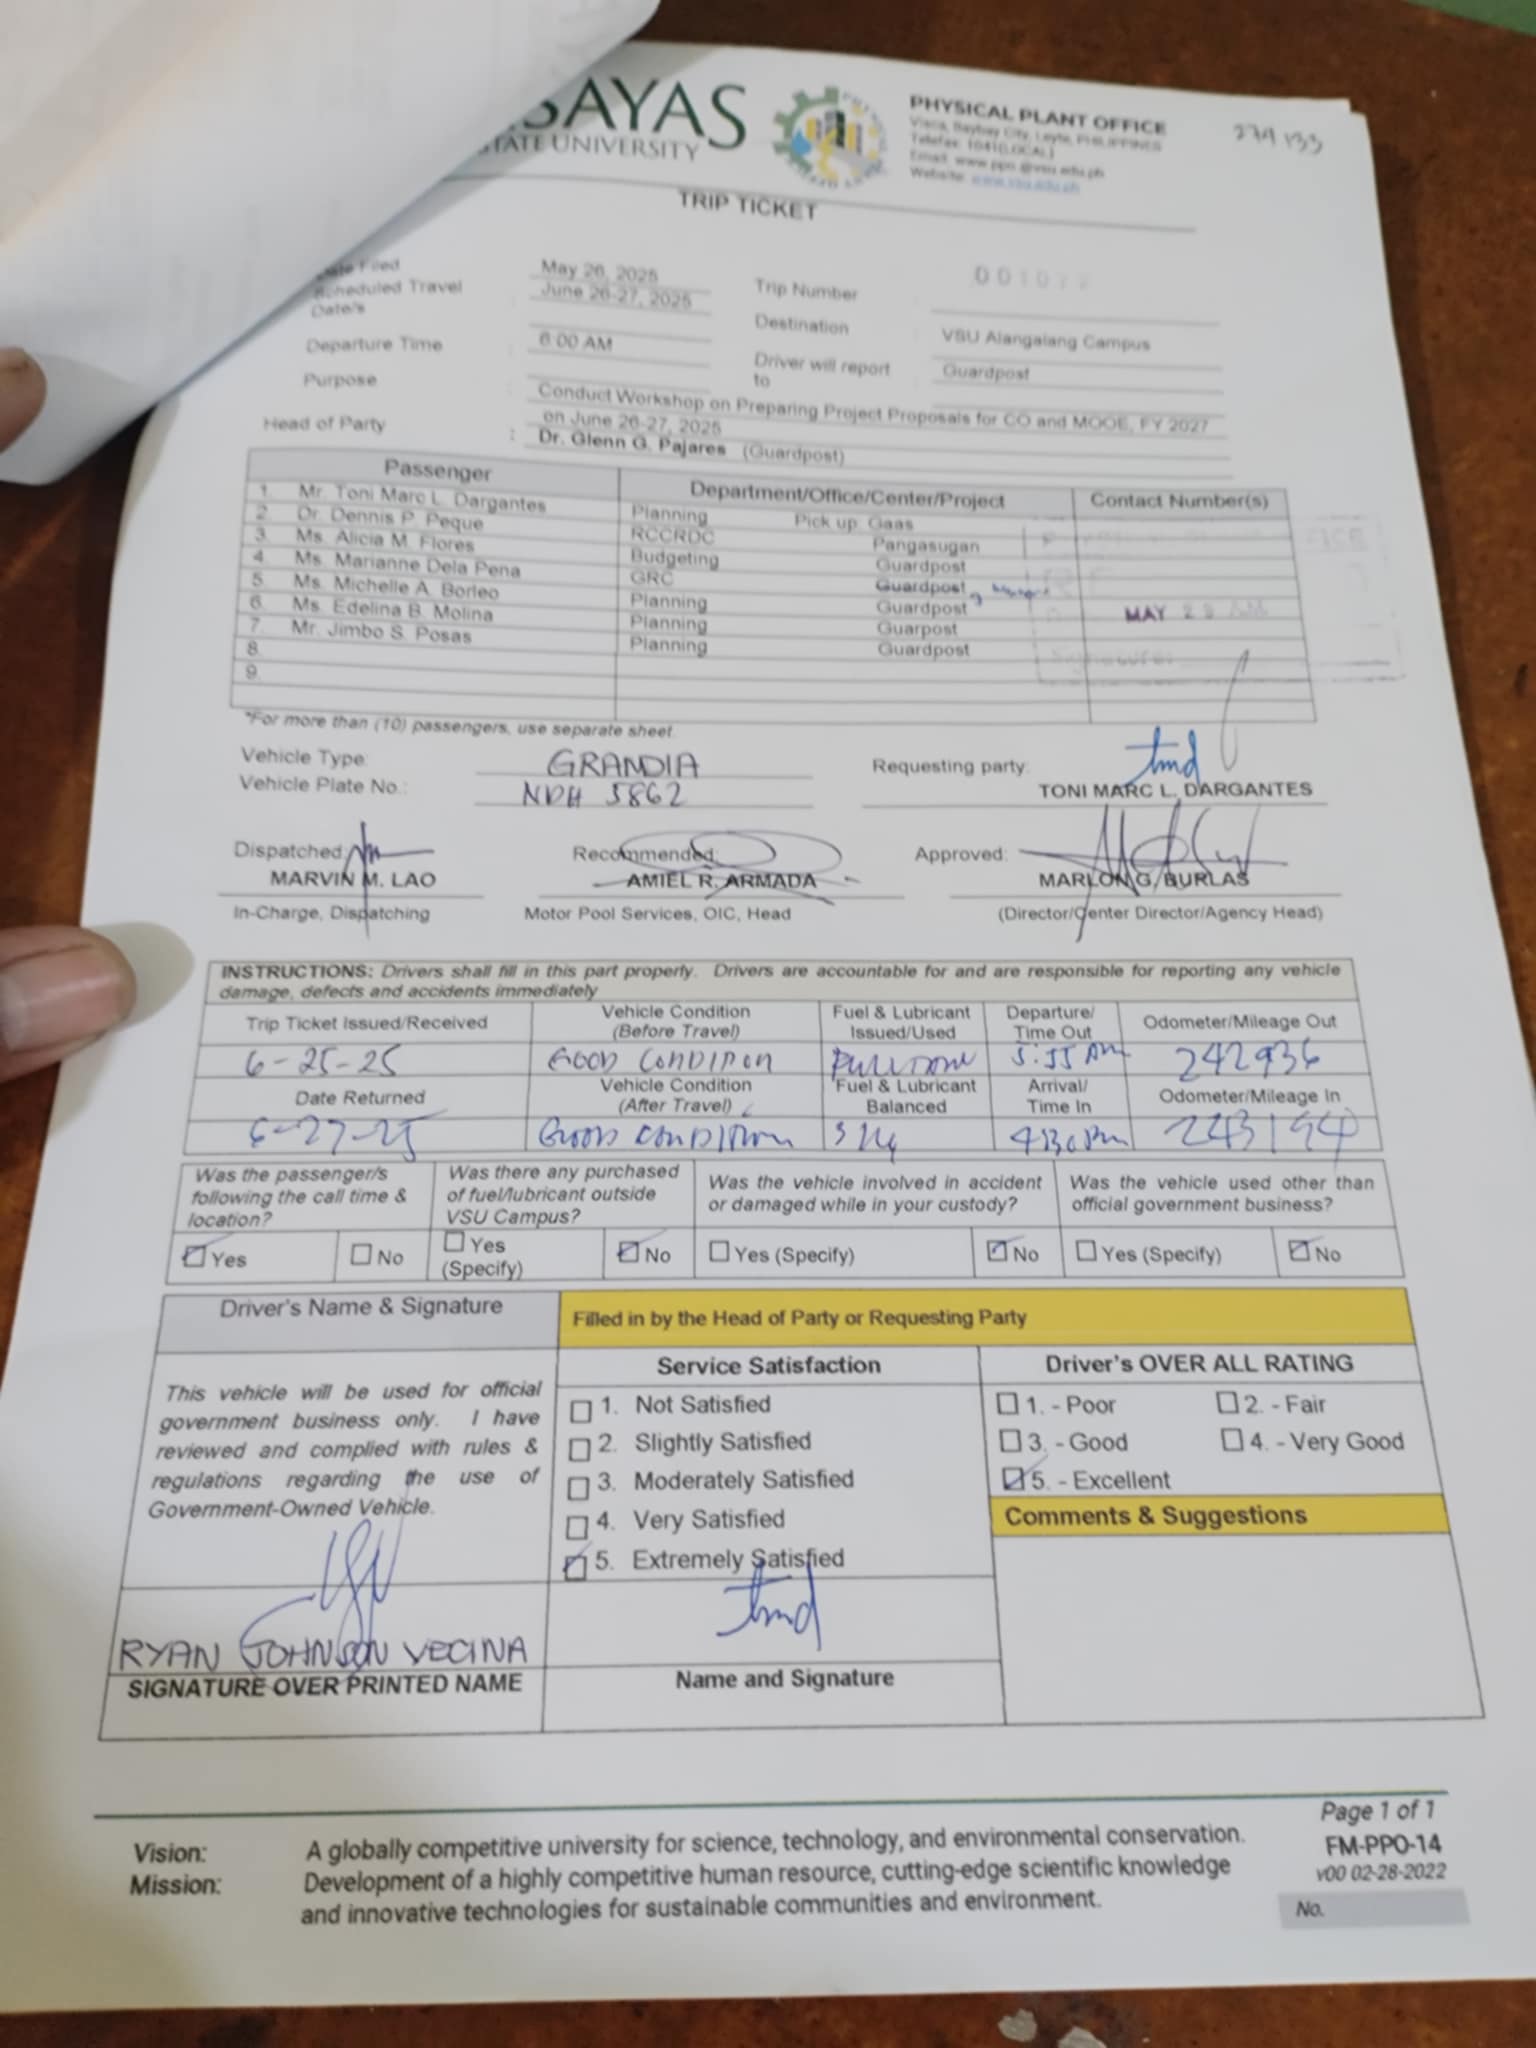 SAYAS
STATE UNIVERSITY
PHYSICAL PLANT OFFICE
Visca, Baybay City, Leyte, PHILIPPINES
Telefax: 1041(LOCAL)
Email: www.ppo.@vsu.edu.ph
Website: www.vsu.edu.ph
274 133
TRIP TICKET
Date Filed May 26, 2025
Trip Number
Scheduled Travel Date/s : June 26-27, 2025
Destination : VSU Alangalang Campus
Departure Time : 6:00 AM
Driver will report to : Guardpost
Purpose : Conduct Workshop on Preparing Project Proposals for CO and MOOE, FY 2027
on June 26-27, 2025
Head of Party : Dr. Glenn G. Pajares (Guardpost)
Passenger Department/Office/Center/Project Contact Number(s)
1. Mr. Toni Marc L. Dargantes Planning Pick up: Gaas
2. Dr. Dennis P. Peque RCCRDC Pangasugan
3. Ms. Alicia M. Flores Budgeting Guardpost
4. Ms. Marianne Dela Pena GRC Guardpost
5. Ms. Michelle A. Borleo Planning Guardpost
6. Ms. Edelina B. Molina Planning Guarpost
7. Mr. Jimbo S. Posas Planning Guardpost
8.
9.
MAY
Signature:
*For more than (10) passengers, use separate sheet.
Vehicle Type: GRANDIA
Requesting party: tmd
Vehicle Plate No.: NDH 5862
TONI MARC L. DARGANTES
Dispatched: Recommended: Approved:
MARVIN M. LAO AMIEL R. ARMADA MARLON G. BURLAS
In-Charge, Dispatching Motor Pool Services, OIC, Head (Director/Center Director/Agency Head)
INSTRUCTIONS: Drivers shall fill in this part properly. Drivers are accountable for and are responsible for reporting any vehicle
damage, defects and accidents immediately
Trip Ticket Issued/Received Vehicle Condition (Before Travel) Fuel & Lubricant Issued/Used Departure/ Time Out Odometer/Mileage Out
6-25-25 GOOD CONDITION 5:55 AM 242936
Date Returned Vehicle Condition (After Travel) Fuel & Lubricant Balanced Arrival/ Time In Odometer/Mileage In
6-27-25 GOOD CONDITION 4:30 PM 243194
Was the passenger/s following the call time & location?
Was there any purchased of fuel/lubricant outside VSU Campus?
Was the vehicle involved in accident or damaged while in your custody?
Was the vehicle used other than official government business?
Yes No Yes (Specify) No Yes (Specify) No Yes (Specify) No
Driver's Name & Signature
Filled in by the Head of Party or Requesting Party
Service Satisfaction
Driver's OVER ALL RATING
This vehicle will be used for official
government business only. I have
reviewed and complied with rules &
regulations regarding the use of
Government-Owned Vehicle.
1. Not Satisfied
2. Slightly Satisfied
3. Moderately Satisfied
4. Very Satisfied
5. Extremely Satisfied
1. - Poor 2. - Fair
3. - Good 4. - Very Good
5. - Excellent
Comments & Suggestions
RYAN JOHNSON VECINA
SIGNATURE OVER PRINTED NAME
tmd
Name and Signature
Page 1 of 1
FM-PPO-14
v00 02-28-2022
No.
Vision: A globally competitive university for science, technology, and environmental conservation.
Mission: Development of a highly competitive human resource, cutting-edge scientific knowledge
and innovative technologies for sustainable communities and environment.